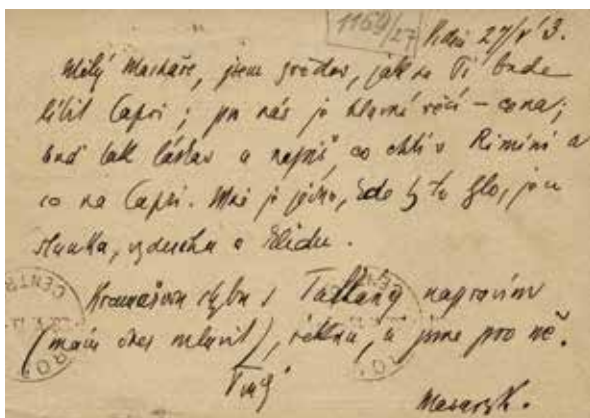 1169/27
27/V 3.
Milý Machaře, jsem zvědav, jak se Ti bude
líbit Capri; pro nás je hlavní věcí – cena;
buď tak láskav a napiš co chtí v Rimini a
co na Capri. Mně je jedno, kde by to šlo, jen
slunka, vzduchu a klidu.
Kramářovu chybu s Tallány napravím
(mám dnes mluvit), řeknu, a jsme pro ně.
Tvůj
Masaryk.
CENTR